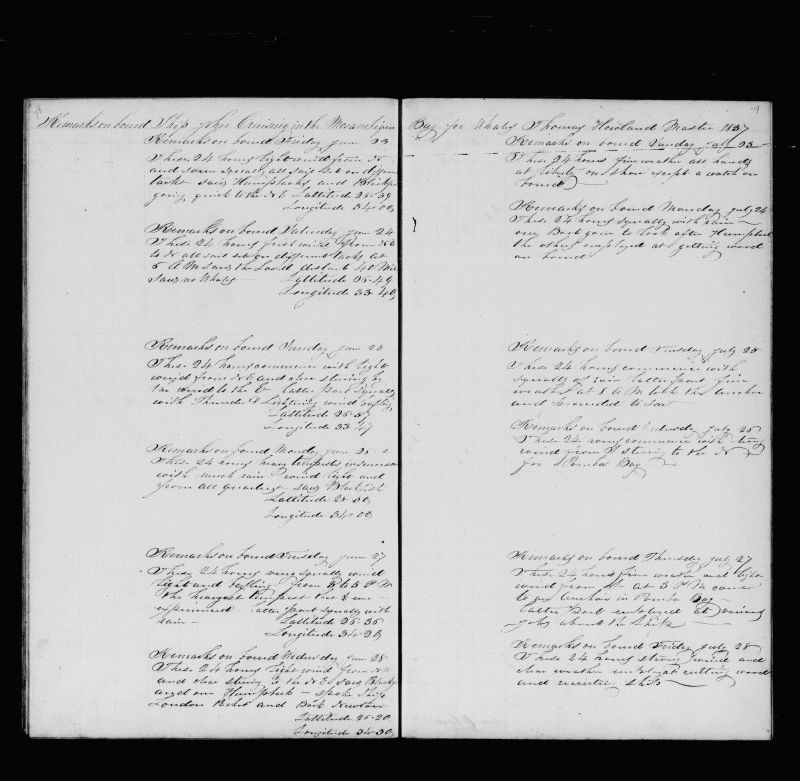 78
Remarks on bourd Ship John Cruising in the Mosambique
Remarks on bourd Friday june 23
These 24 hours light wind from
and some squals all sail set on different
tacks saw Humpbacks and Blackfish
going quick to the N E Lattitude 25-39
Longitude 34-00
Remarks on bourd Saturday june 24
These 24 hours fresh winds from
to N all sail set on different tacks at
5 A M saw the Land distant 40 Miles
saw no Whales Lattitude 25-49
Longitude 33-40
Remarks on bourd Sunday june 25
These 24 hours commence with light
wind from N E and clear stering by
the wind to the latter Part squally
with Thunder & Lightning wind
Lattitude 25-37
Longitude 33-47
Remarks on bourd Monday june
These 24 hours heavy tempests
with much rain wind light and
from all quarters saw Blackfish
Lattitude 25-00
Longitude 34-00
Remarks on bourd Tuesday june 27
These 24 hours very squally wind
light and bafling from 3 to 5 P M
the heavyest tempest that I ever
experienced latter part squally with
rain Lattitude 25-35
Longitude 34-20
Remarks on bourd Wednesday june 28
These 24 hours light wind from
and clear string to the N E saw
and one Humpback - spoke Ships
London Packet and Bark Newton
Lattitude 25-20
Longitude 34-30
Bay for Whales Thomas Howland Master 1837
Remarks on bourd Sunday july 23
These 24 hours fine weather all hands
at liberty on shore except a watch on
bourd
Remarks on bourd Monday july 24
These 24 hours squally with rain
one Boat gone to look after Humpback
the others employed at getting wood
on bourd
Remarks on bourd Tuesday july 25
These 24 hours commence with
squalls of rain latter part fine
weather at 8 A M took the anchor
and proceeded to Sea
Remarks on bourd Wednesday july 26
These 24 hours commence with strong
wind from S stering to the N
for Pomba Bay
Remarks on bourd Thursday july 27
These 24 hours fine weather and light
wind from at 3 P M came
to an anchor in Pomba Bay
latter Part employed at various
jobs about the Ship
Remarks on bourd Friday july 28
These 24 hours strong wind and
clear weather employed at cutting wood
and Ship